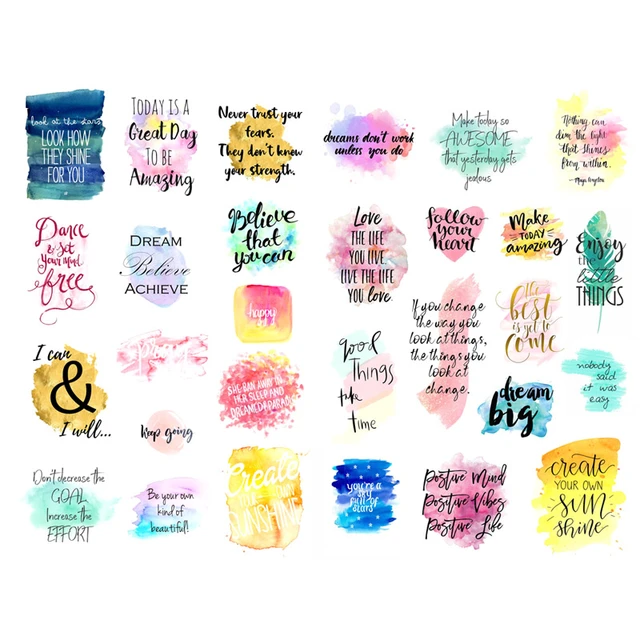 look at the stars
LOOK HOW
THEY SHINE
FOR YOU
TODAY IS A
Great Day
TO BE
Amazing
Never trust your
fears.
They don't know
your strength.
dreams don't work
unless you do.
Make today so
AWESOME
that yesterday gets
jealous
Nothing can
dim the light
that shines
from within.
- Maya Angelou
Dance
& set
your mind
free
DREAM
Believe
ACHIEVE
Believe
that
you can
happy
Love
THE LIFE
YOU LIVE.
LIVE THE LIFE
YOU LOVE.
follow
your
heart
Make
TODAY
amazing
Enjoy
the
little
THINGS
I can
&
I will...
keep going
SHE RAN AWAY IN
HER SLEEP AND
DREAMED OF PARADISE
Good
THINGS
take
time
If you change
the way you
look at things,
the things you
look at
change.
the
best
is yet to
come
dream
big
nobody
said
it was
easy
Don't decrease the
GOAL
Increase the
EFFORT
Be your own
kind of
beautiful!
Create
YOUR OWN
SUNSHINE
you're a
sky
full of
stars
Positive Mind
Positive Vibes
Positive Life
create
YOUR OWN
SUN
shine